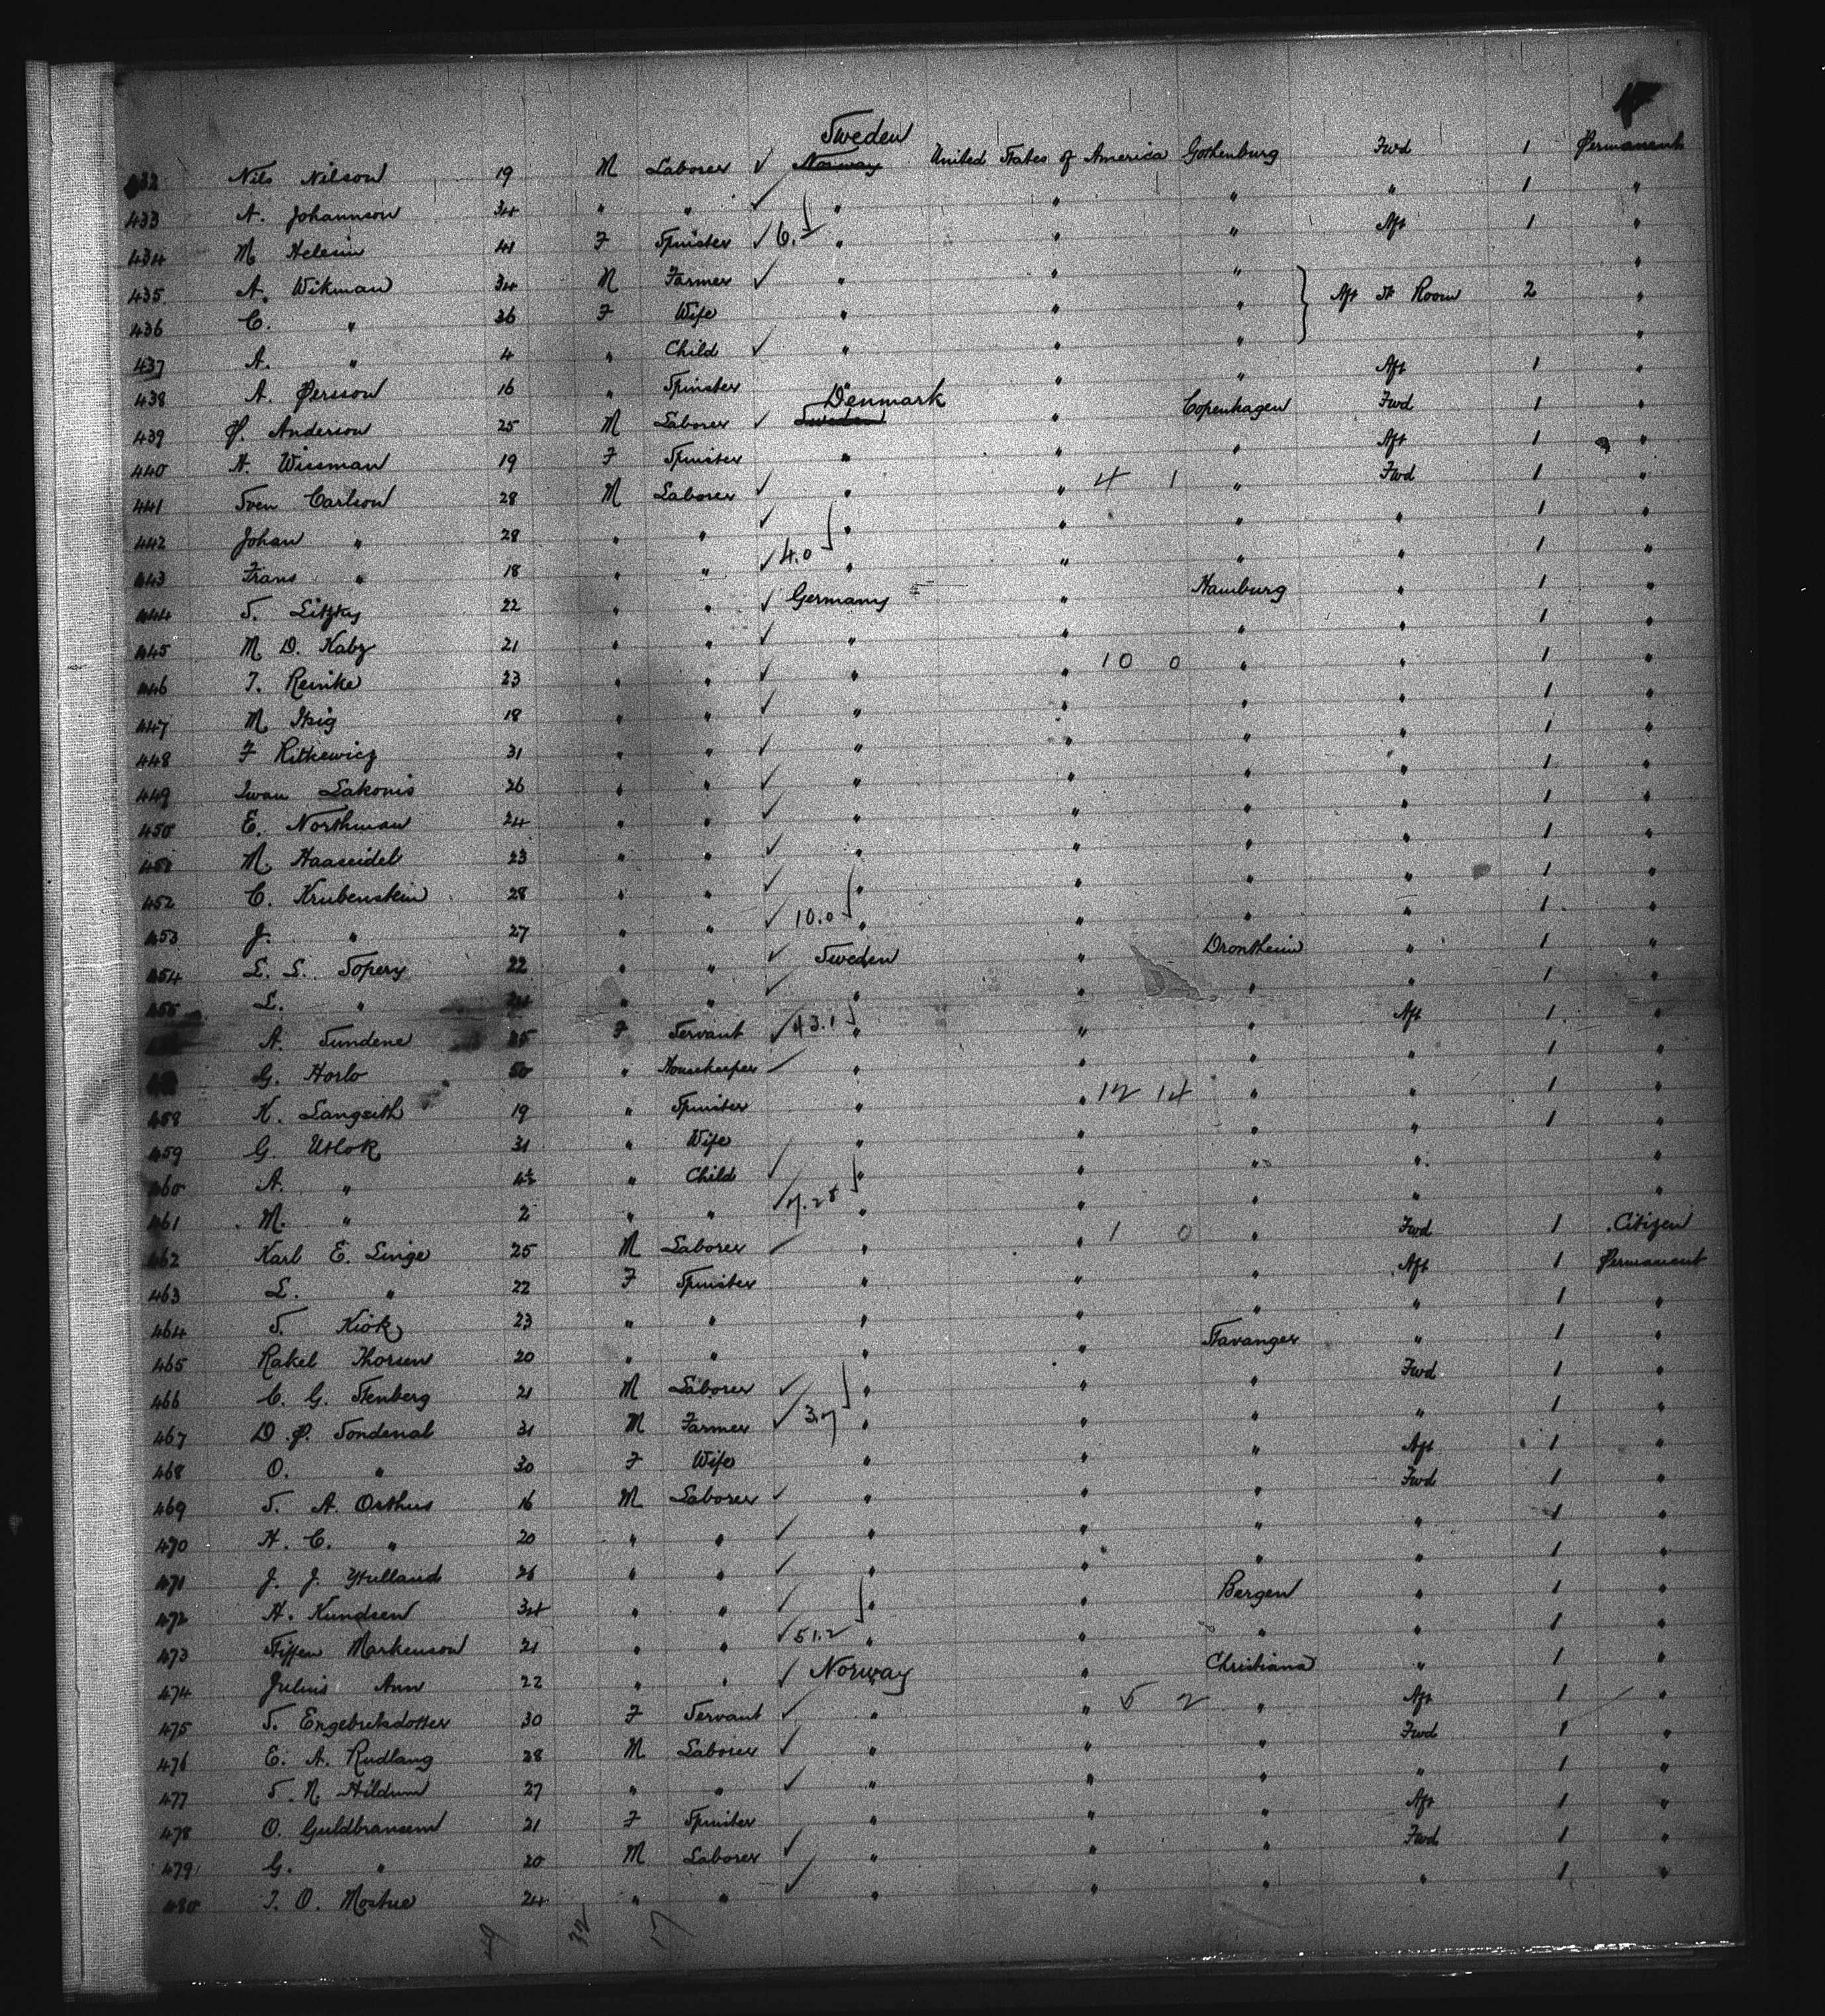 Sweden
432 Nils Nilson 19 M Laborer ✓ Norway United States of America Gothenburg Fwd 1 Permanent
433 A. Johannson 34 " " ✓ " " " " 1 "
434 M Helsein 41 F Spinster ✓ 6.1 " " " Aft 1 "
435 A. Wikman 34 M Farmer ✓ " " " "
436 C. " 36 F Wife " " " Aft St Room 2 "
437 A. " 4 " Child ✓ " " " "
438 A. Persson 16 " Spinster " " " Aft 1 "
Denmark
439 P. Anderson 25 M Laborer ✓ Sweden " Copenhagen Fwd 1 "
440 H. Wissman 19 F Spinster " " " Aft 1 "
441 Sven Carlson 28 M Laborer ✓ " " 4 1 " Fwd 1 "
442 Johan " 28 " " ✓ " " " " 1 "
443 Frans " 18 " " ✓ 4.0 " " " " 1 "
444 S. Litzky 22 " " ✓ Germany " Hamburg " 1 "
445 M D. Kabz 21 " " ✓ " " " " 1 "
446 J. Reinke 23 " " ✓ " " 10 0 " " 1 "
447 M Itzig 18 " " ✓ " " " " 1 "
448 F Ritkewicz 31 " " ✓ " " " " 1 "
449 Iwan Lakonis 26 " " ✓ " " " " 1 "
450 E. Northman 24 " " ✓ " " " " 1 "
451 M. Haaseidel 23 " " ✓ " " " " 1 "
452 C. Krubenstein 28 " " ✓ " " " " 1 "
453 J. " 27 " " ✓ 10.0 " " " " 1 "
454 L. L. Sopery 22 " " ✓ Sweden " Drontheim " 1 "
455 L. " 24 " " ✓ " " " " 1 "
A. Sundene 25 F Servant ✓ 43.1 " " " Aft 1 "
G. Horlo 50 " Housekeeper ✓ " " " " 1 "
458 K. Langseth 19 " Spinster " " 12 14 " " 1 "
459 G. Utlok 31 " Wife " " " " 1 "
460 A. " 4½ " Child ✓ " " " " "
461 M. " 2 " " ✓ 7.28 " " " " "
462 Karl E. Linge 25 M Laborer ✓ " " 1 0 " Fwd 1 Citizen
463 L. " 22 F Spinster " " " Aft 1 Permanent
464 S. Kiok 23 " " " " " " 1 "
465 Rakel Thorsen 20 " " " " Stavanger " 1 "
466 C. G. Stenberg 21 M Laborer ✓ " " " Fwd 1 "
467 D. P. Sondenal 31 M Farmer ✓ 3.7 " " " " 1 "
468 O. " 30 F Wife " " " Aft 1 "
469 S. A. Orthus 16 M Laborer ✓ " " " Fwd 1 "
470 H. C. " 20 " " ✓ " " " " 1 "
471 J. J. Ytulland 26 " " ✓ " " " " 1 "
472 H. Kundsen 34 " " ✓ " " Bergen " 1 "
473 Stiffen Markenson 21 " " ✓ 51.2 " " " " 1 "
474 Julius Ann 22 " " ✓ Norway " Christiana " 1 "
475 S. Engebretsdotter 30 F Servant ✓ " " 5 2 " Aft 1 "
476 E. A. Rudlang 28 M Laborer ✓ " " " Fwd 1 "
477 S. N. Hildrum 27 " " ✓ " " " " 1 "
478 O. Guldbransen 21 F Spinster " " " Aft 1 "
479 G. " 20 M Laborer ✓ " " " Fwd 1 "
480 J. O. Mostue 24 " " ✓ " " " " 1 "
32 17